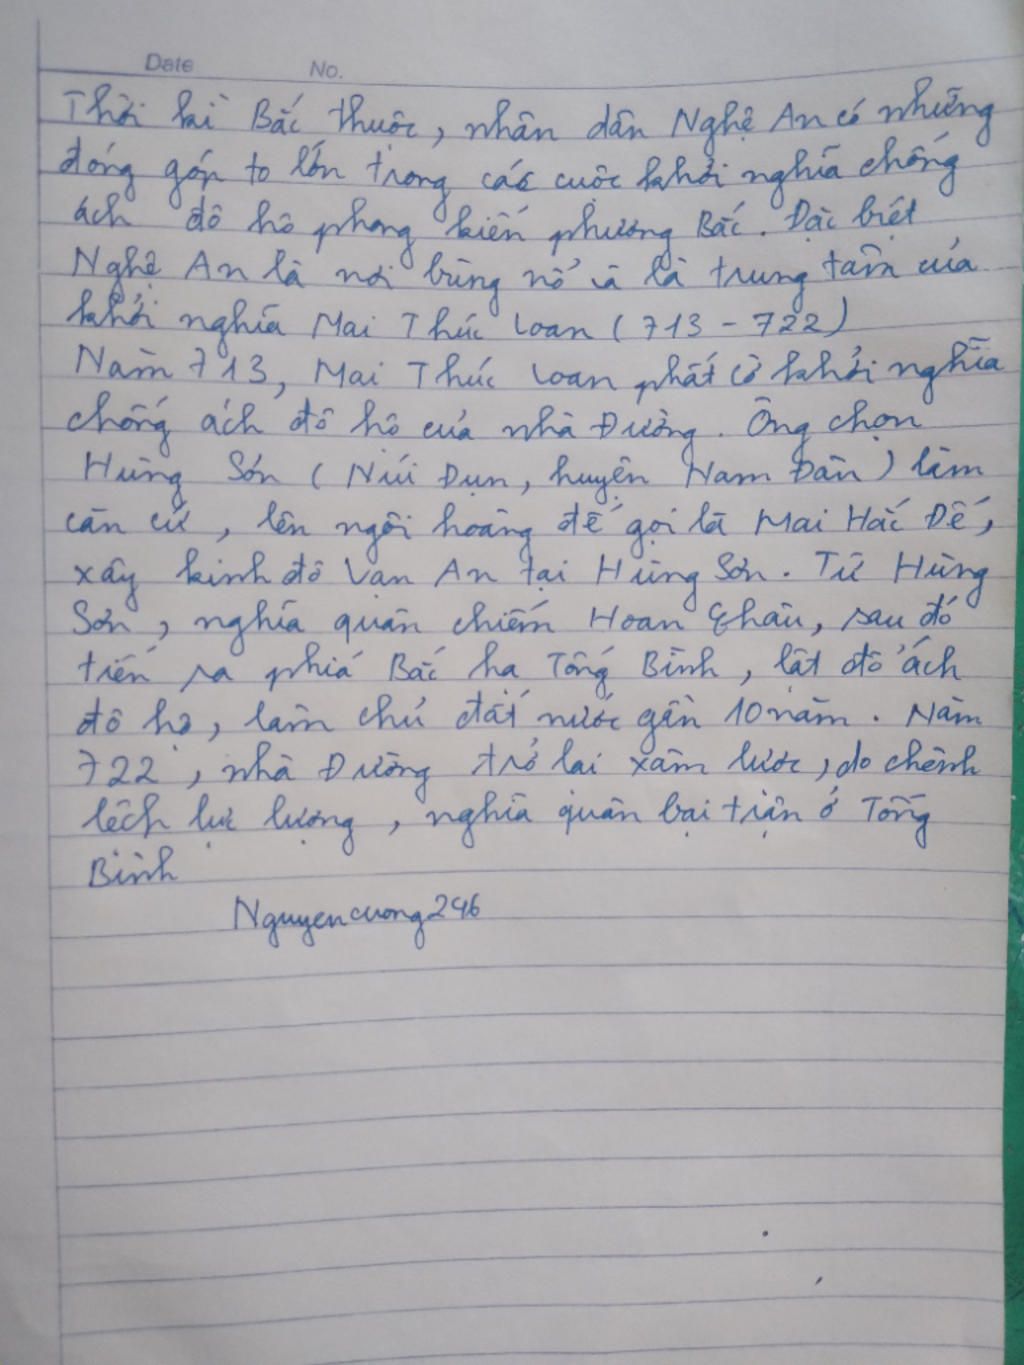 Date No.
Thời kì Bắc thuộc, nhân dân Nghệ An có những
đóng góp to lớn trong các cuộc khởi nghĩa chống
ách đô hộ phong kiến phương Bắc. Đặc biệt
Nghệ An là nơi bùng nổ và là trung tâm của
khởi nghĩa Mai Thúc Loan (713 - 722)
Năm 713, Mai Thúc Loan phất cờ khởi nghĩa
chống ách đô hộ của nhà Đường. Ông chọn
Hùng Sơn (Núi Đụn, huyện Nam Đàn) làm
căn cứ, lên ngôi hoàng đế gọi là Mai Hắc Đế,
xây kinh đô Vạn An tại Hùng Sơn. Từ Hùng
Sơn, nghĩa quân chiếm Hoan Châu, sau đó
tiến ra phía Bắc hạ Tống Bình, lật đổ ách
đô hộ, làm chủ đất nước gần 10 năm. Năm
722, nhà Đường trở lại xâm lược, do chênh
lệch lực lượng, nghĩa quân bại trận ở Tống
Bình
Nguyencuong246